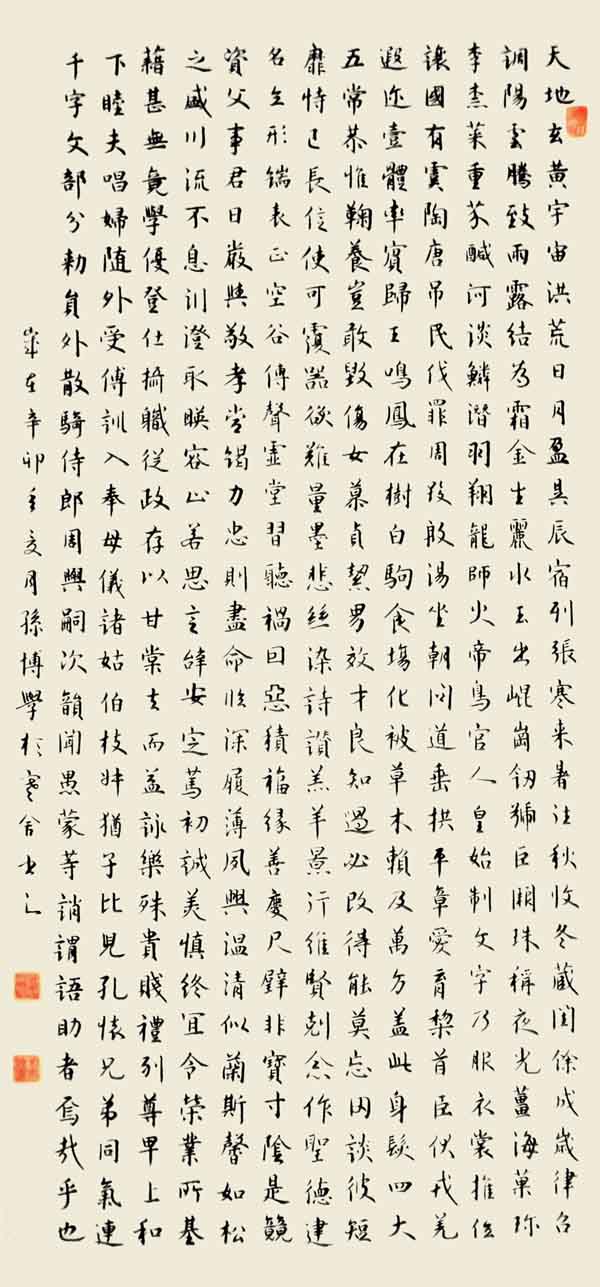 天地玄黃宇宙洪荒日月盈昃辰宿列張寒来暑往秋收冬藏閏餘成歲律呂
調陽雲騰致雨露結為霜金生麗水玉出崐崗劒號巨闕珠稱夜光薑海菓珍
李柰菜重芥鹹河淡鱗潛羽翔龍師火帝鳥官人皇始制文字乃服衣裳推位
讓國有虞陶唐吊民伐罪周發殷湯坐朝問道垂拱平章愛育黎首臣伏戎羌
遐迩壹體率賓歸王鳴鳳在樹白駒食場化被草木賴及萬方盖此身髮四大
五常恭惟鞠養豈敢毀傷女慕貞絜男效才良知過必改得能莫忘罔談彼短
靡恃己長信使可覆器欲難量墨悲絲染詩讚羔羊景行維賢剋念作聖德建
名立形端表正空谷傳聲虛堂習聽禍因惡積福緣善慶尺璧非寶寸陰是競
資父事君曰嚴與敬孝當竭力忠則盡命臨深履薄夙興溫清似蘭斯馨如松
之盛川流不息淵澄取暎容止若思言辭安定篤初誠美慎終宜令榮業所基
藉甚無竟學優登仕攝職從政存以甘棠去而益詠樂殊貴賤禮別尊卑上和
下睦夫唱婦随外受傅訓入奉母儀諸姑伯枝叔猶子比兒孔懷兄弟同氣連
千字文部分勅員外散騎侍郎周興嗣次韻聞愚蒙等誚謂語助者焉哉乎也
歲在辛卯亥月孫博學於寒舍書之